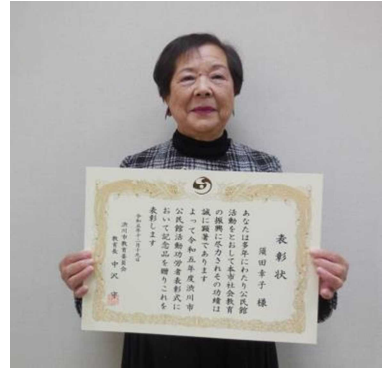 表彰状
須田幸子 様
あなたは多年にわたり公民館
活動をとおして本市社会教育
の振興に尽力されその功績は
誠に顕著であります
よって令和五年度渋川市
公民館活動功労者表彰式に
おいて記念品を贈りこれを
表彰します
令和五年十二月十九日
渋川市教育委員会
教育長 中沢 守